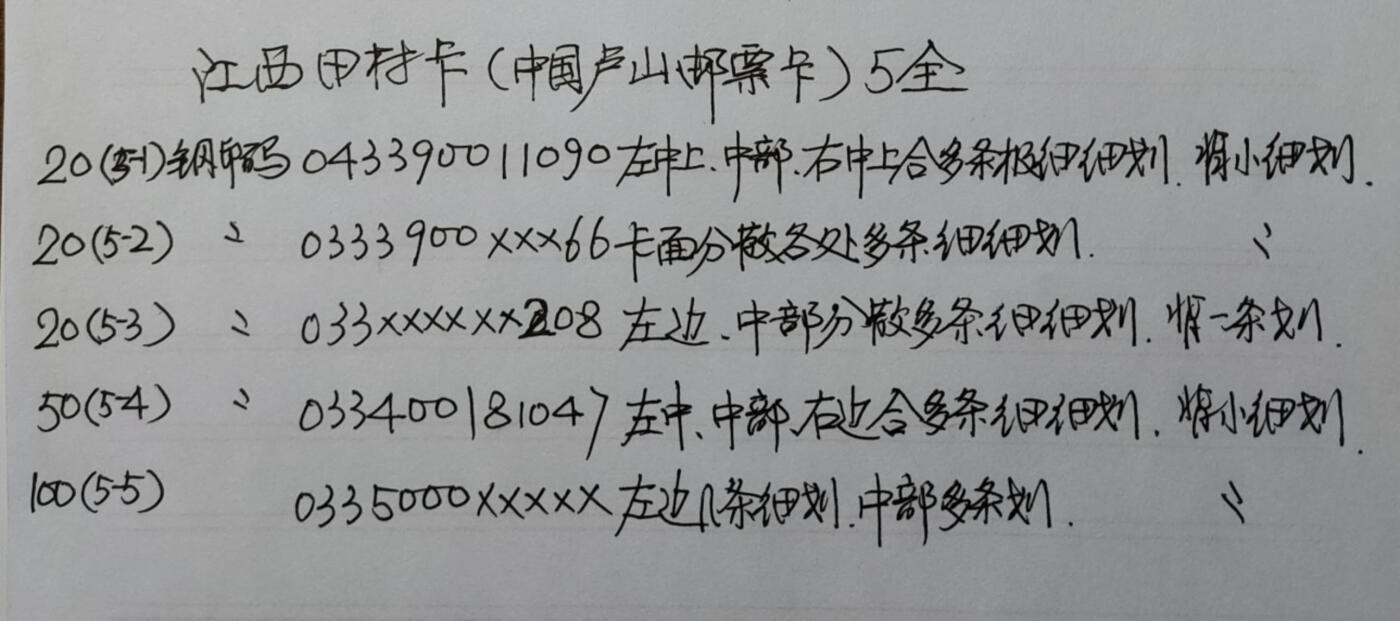 江西田村卡(中国庐山邮票卡)5全
20(5-1)钢印码 043390011090左中上、中部、右中上合多条极细细划. 背小细划.
20(5-2) 〃 0333900×××66卡面分散各处多条细细划. 〃
20(5-3) 〃 033××××××208 左边、中部分散多条细细划. 背一条划.
50(5-4) 〃 033400181047 左中、中部、右边合多条细细划. 背小细划.
100(5-5) 0335000××××× 左边几条细划.中部多条划. 〃